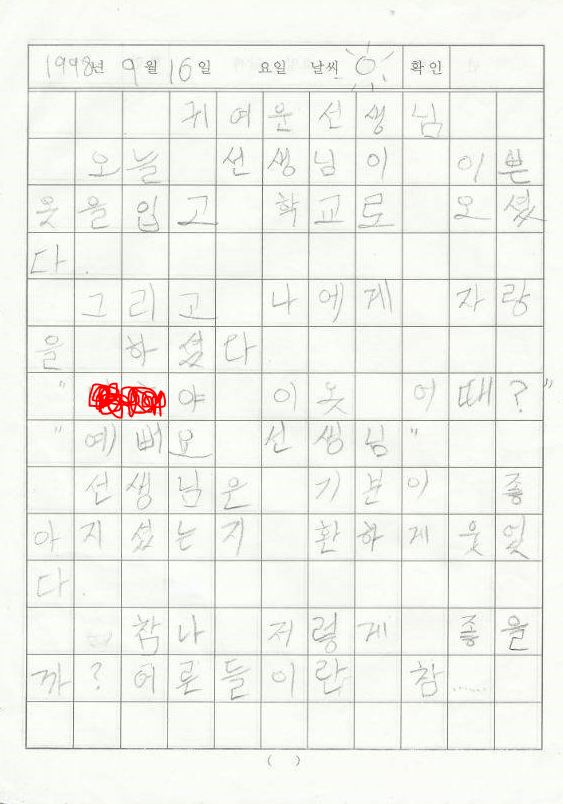 1998년 9월 16일 요일 날씨 확인
귀여운선생님
오늘 선생님이 이쁜
옷을입고 학교로 오셨
다.
그리고 나에게 자랑
을 하셨다
" 야 이옷 어때?"
"예뻐요 선생님"
선생님은 기분이 좋
아지셨는지 환하게 웃었
다.
참나 저렇게 좋을
까? 어른들이란 참......
( )